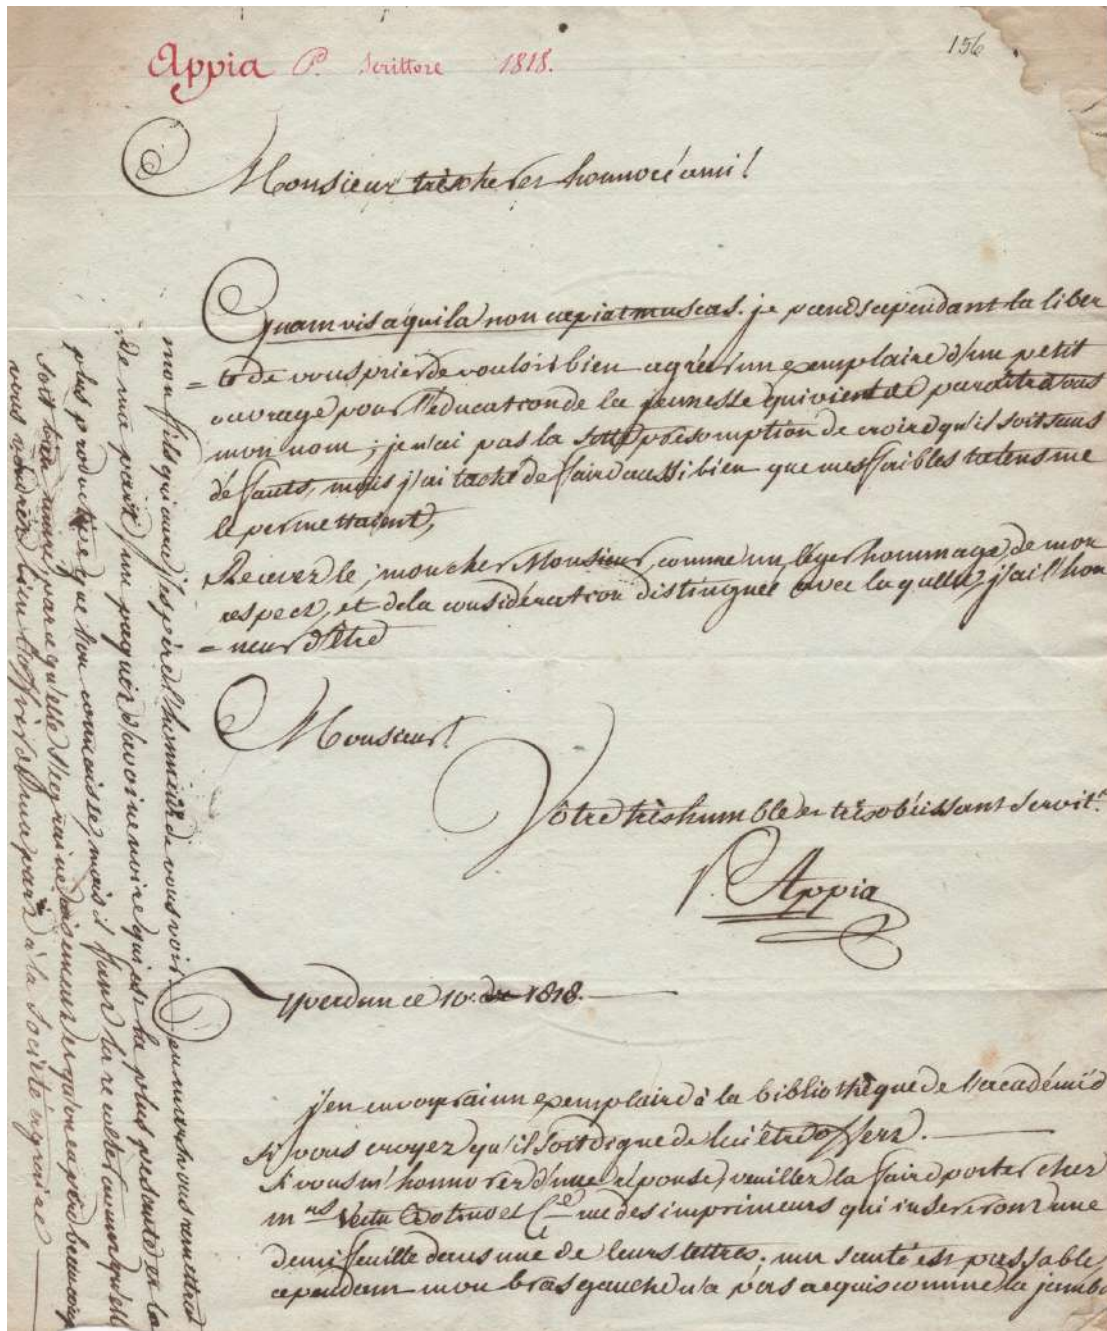 156
Appia P. Scrittore 1818.
Monsieur très cher et honnoré ami!
Quamvis aquila non capiat muscas. je prends cependant la liber
= té de vous prier de vouloir bien agréer un exemplaire d'un petit
ouvrage pour l'éducation de la jeunesse qui vient de paroître sous
mon nom; je n'ai pas la sotte présomption de croire qu'il soit sans
défauts, mais j'ai taché de faire aussi bien que mes foibles talens me
le permettaient,
Recevez le, mon cher Monsieur, comme un léger hommage de mon
respect, et de la considération distinguée avec laquelle j'ai l'hon
= neur d'être
Monsieur!
Vôtre très humble et très obéissant Servit.r
P. Appia
Yverdun ce 10. 1818.
j'en enverrai un exemplaire à la bibliothèque de l'académie
si vous croyez qu'il soit digne de lui être offert.
Si vous m'honnorez d'une réponse, veuillez la faire porter chez
m.rs et C.ie rue des imprimeurs qui insereront une
demi feuille dans une de leurs lettres; ma santé est passable,
cependant mon bras gauche n'a pas acquis comme la jambe
mon fils qui aura j'espère l'honneur de vous voir en mars vous remettra
de ma part un paquet d'avoine noire qui est la plus pesante et la
plus productive que l'on connoisse, mais il faut la recolter avant qu'elle
soit bien mure, parce qu'elle s'egraine aisement et qu'on en perd beaucoup
vous voudrez bien l'offrir de ma part à la Société agraire